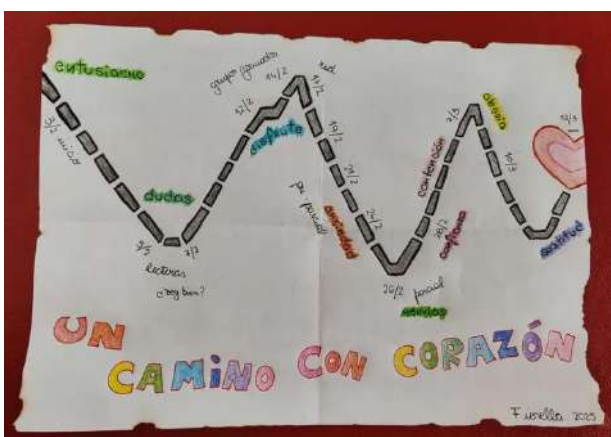 entusiasmo
3/2 inicio
dudas
7/2
lecturas
¿voy bien?
12/2
grupos formados
14/2
disfrute
red
17/2
19/2
21/2
24/2
pre-parcial
ansiedad
26/2 parcial
nervios
28/2
confianza
contención
7/3
abrazo
10/3
gratitud
12/3
UN
CAMINO CON CORAZÓN
Fiorella 2025